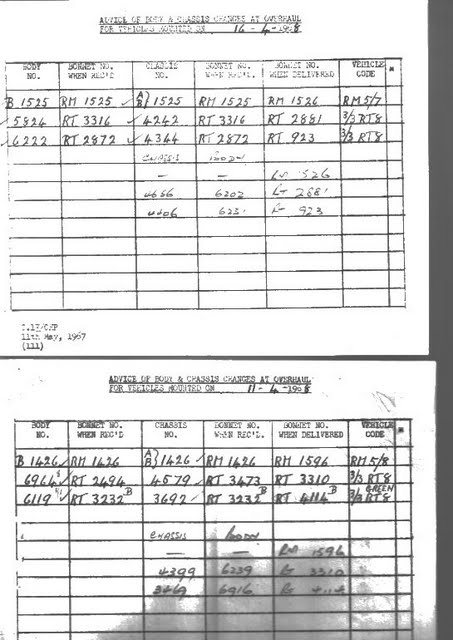 ADVICE OF BODY & CHASSIS CHANGES AT OVERHAUL
FOR VEHICLES MOUNTED ON 16 - 4 - 1968
BODY NO. BONNET NO. WHEN REC'D CHASSIS NO. BONNET NO. WHEN REC'D. BONNET NO. WHEN DELIVERED VEHICLE CODE
B 1525 RM 1525 A/B 1525 RM 1525 RM 1526 RM 5/7
5824 RT 3316 4242 RT 3316 RT 2881 3/3 RT8
6222 RT 2872 4344 RT 2872 RT 923 3/3 RT8
CHASSIS BODY
— — RM 1526
4656 6202 RT 2881
4406 623 RT 923
11th May, 1967
(111)
ADVICE OF BODY & CHASSIS CHANGES AT OVERHAUL
FOR VEHICLES MOUNTED ON 11 - 4 - 1968
BODY NO. BONNET NO. WHEN REC'D CHASSIS NO. BONNET NO. WHEN REC'D. BONNET NO. WHEN DELIVERED VEHICLE CODE
B 1426 RM 1426 A/B 1426 RM 1426 RM 1596 RM 5/8
6964 RT 2494 4579 RT 3473 RT 3310 3/3 RT8
6119 RT 3232 B 3692 RT 3232 B RT 4114 B GREEN 3/3 RT8
CHASSIS BODY
— — RM 1596
4399 6239 RT 3310
3469 6916 RT 4114